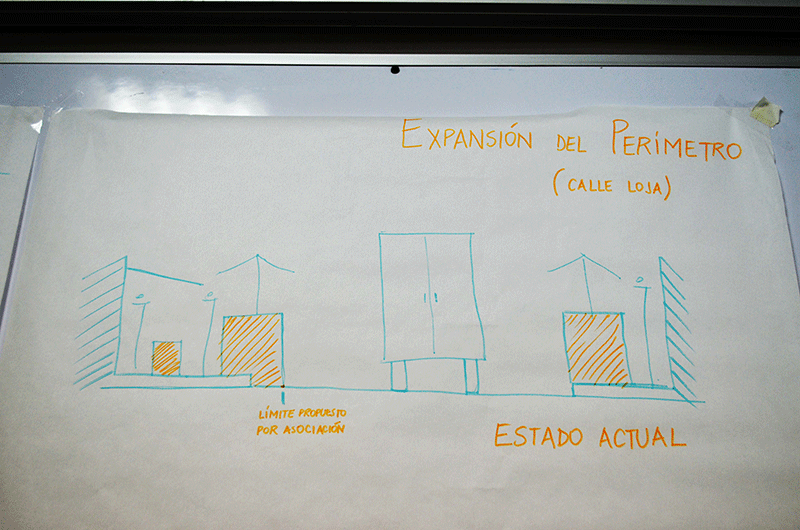 EXPANSIÓN DEL PERÍMETRO
(CALLE LOJA)
LÍMITE PROPUESTO
POR ASOCIACIÓN
ESTADO ACTUAL